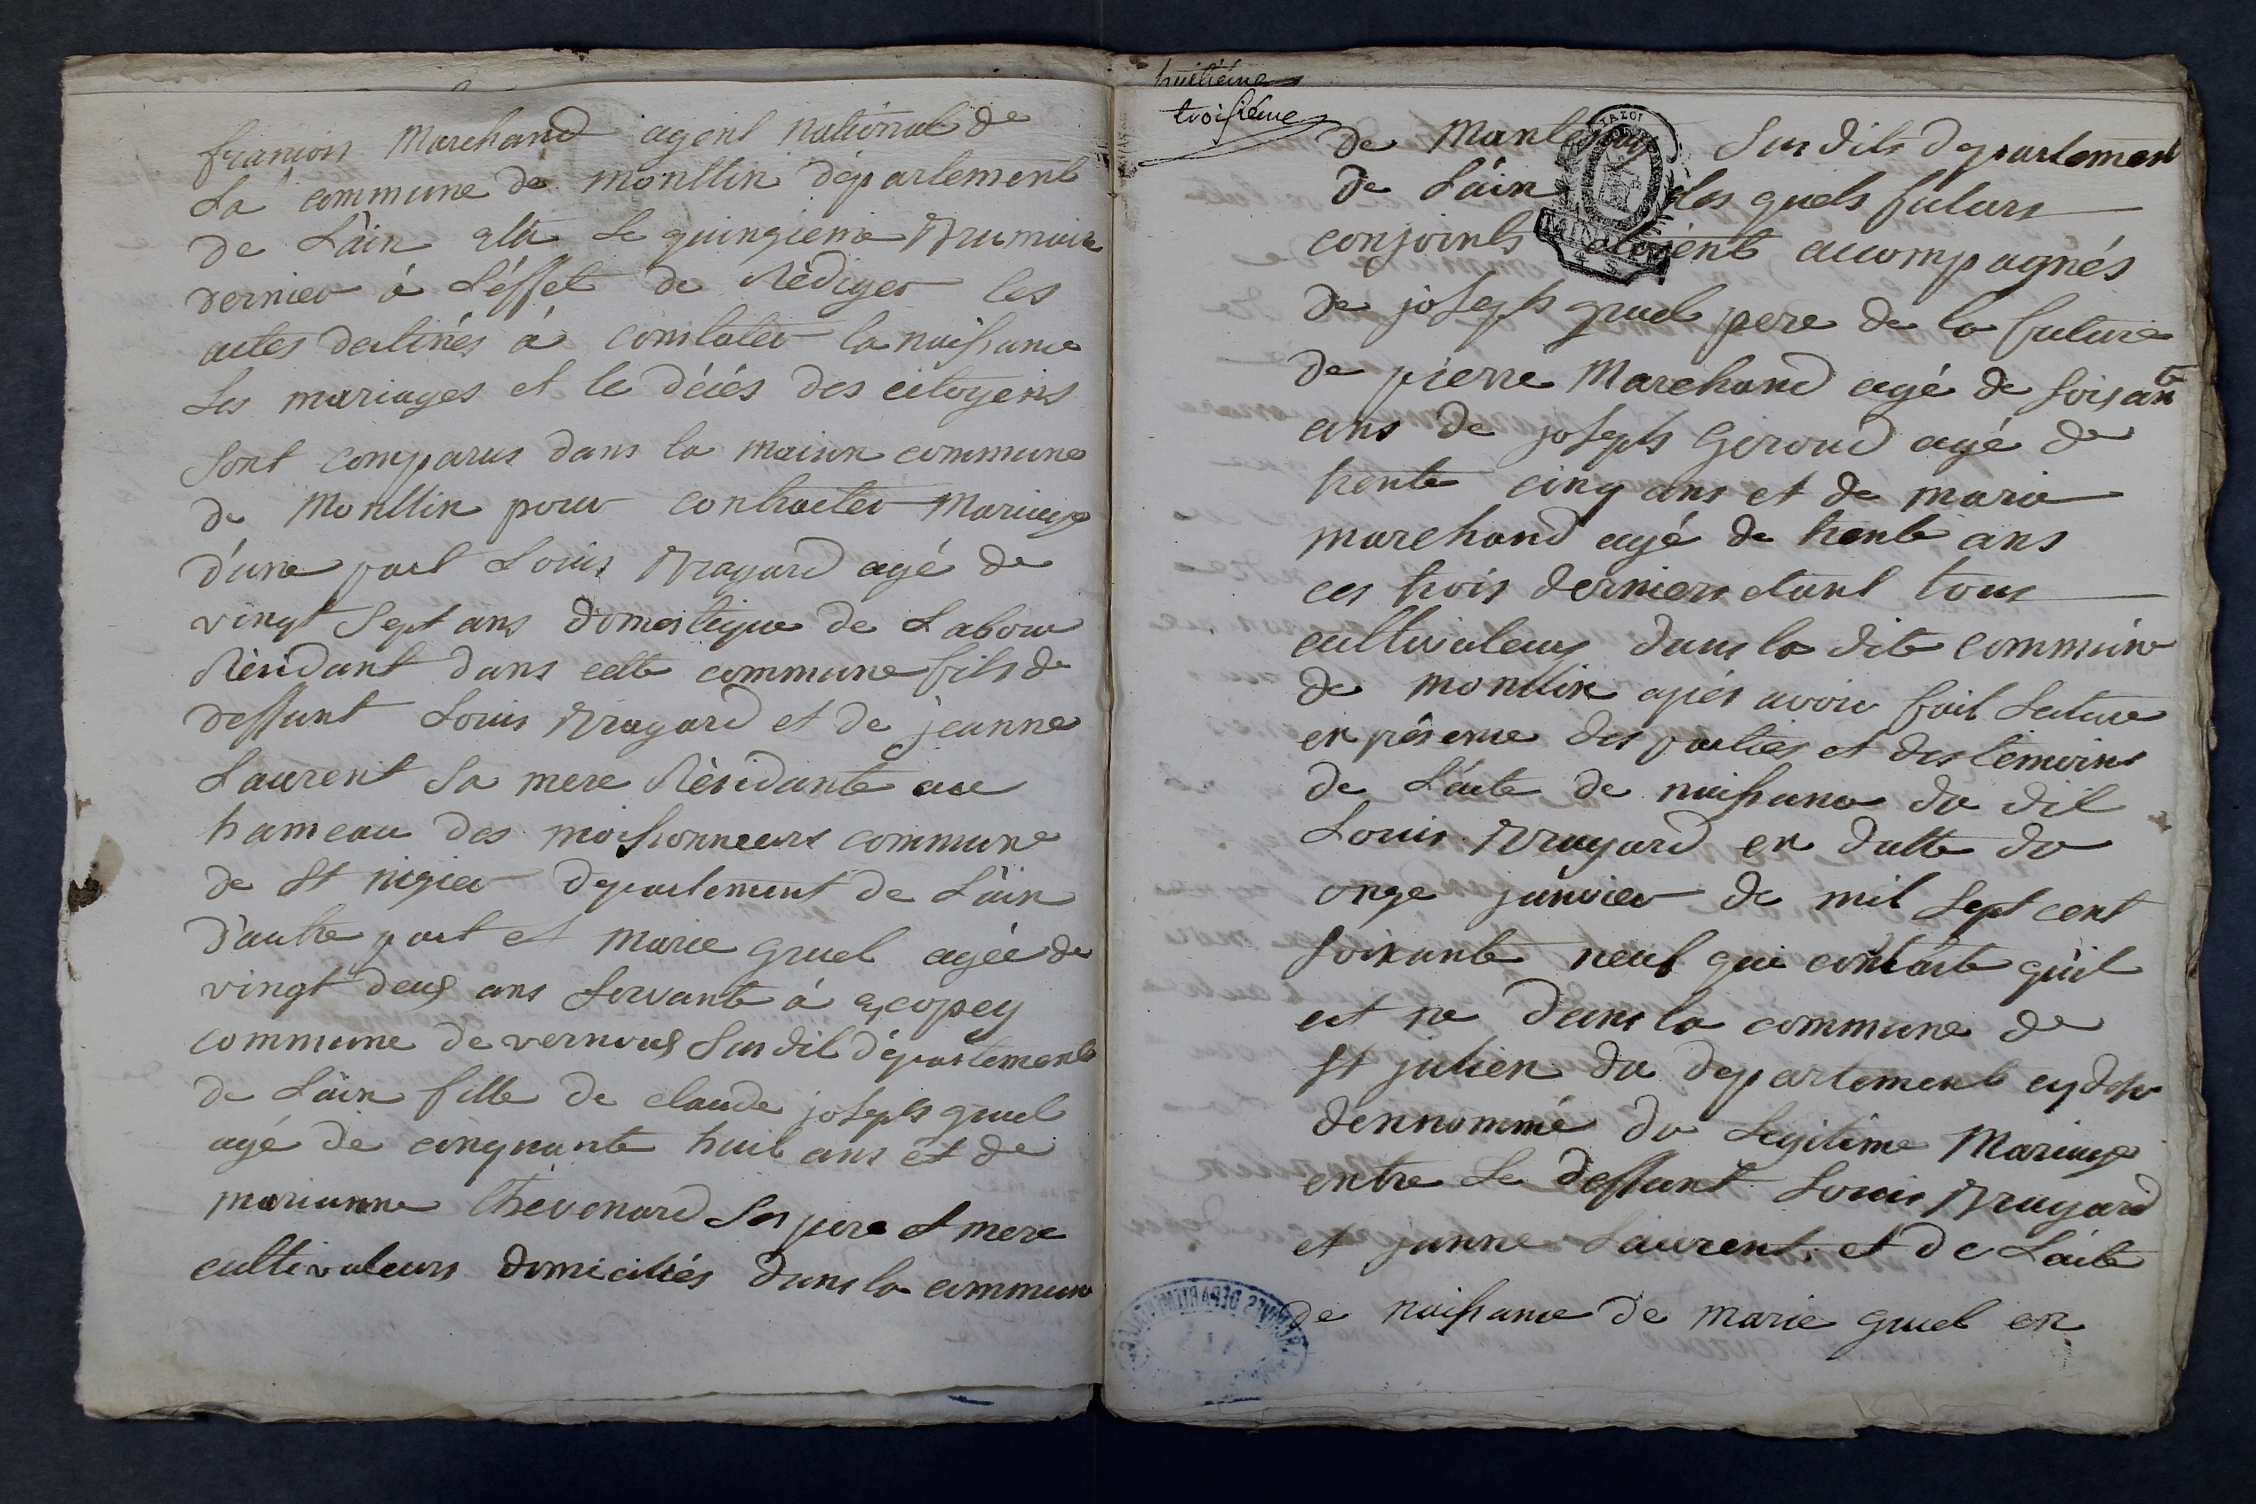 françois Marchand agent national de
La commune de montlin département
de L'ain elu Le quinzieme Brumaire
dernier à L'éffet de Rédiger les
actes destinés à constater la naissance
Les mariages et le décés des citoyens
sont comparus dans la maison commune
de Montlin pour contracter Mariage
d'une part Louis Brayard agé de
vingt sept ans domestique de Labour
Résidant dans cette commune fils de
deffunt Louis Brayard et de jeanne
Laurent sa mere Résidante au
hameau des moissonneurs commune
de st nizier departement de L'ain
d'autre part et marie gruel agée de
vingt deux ans servante à escopey
commune de vernoux susdit département
de L'ain fille de claude joseph gruel
agé de cinquante huit ans et de
marianne Thevenard ses pere et mere
cultivateurs domiciliés dans la commune
huitiéme
troisiéme
de Mantenay susdits departement
de L'ain les quels futurs
conjoints etoient accompagnés
de joseph gruel pere de la future
de pierre Marchand agé de soisante
ans de joseph Geroud agé de
trente cinq ans et de marie
marchand agé de trente ans
ces trois derniers etant tous
cultivateurs dans la dite commune
de montlin après avoir fait Lecture
en présence des parties et des témoins
de L'acte de naissance du dit
Louis Brayard en datte du
onze janvier de mil sept cent
soixante neuf qui constate qu'il
est ne dans la commune de
st julien du departement cy dessus
dennommé du Legitime Mariage
entre Le deffunt Louis Brayard
et janne Laurent, et de L'acte
de naissance de marie gruel en